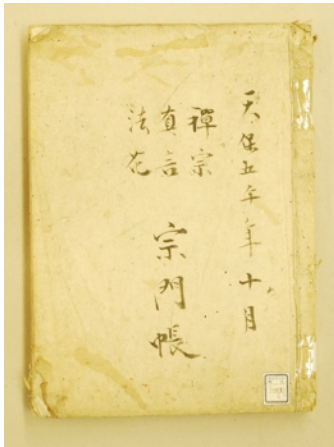 天保五午年十月
禅宗
真言
法花
宗門帳